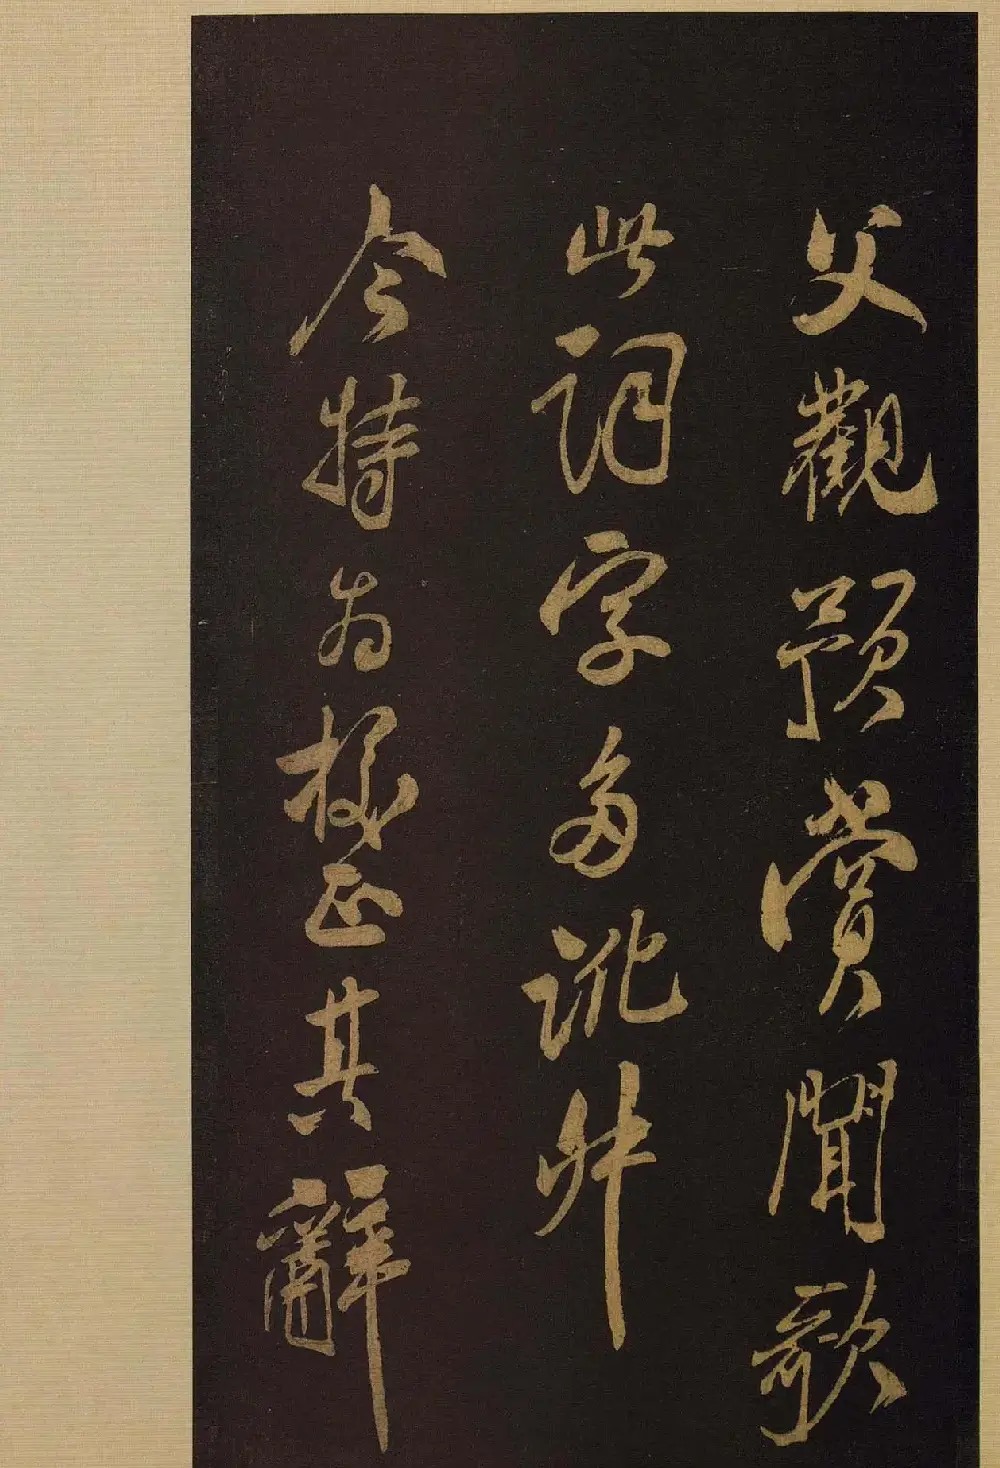 父觀預賞聞歌
此詞字多訛舛
今特為校正其辭